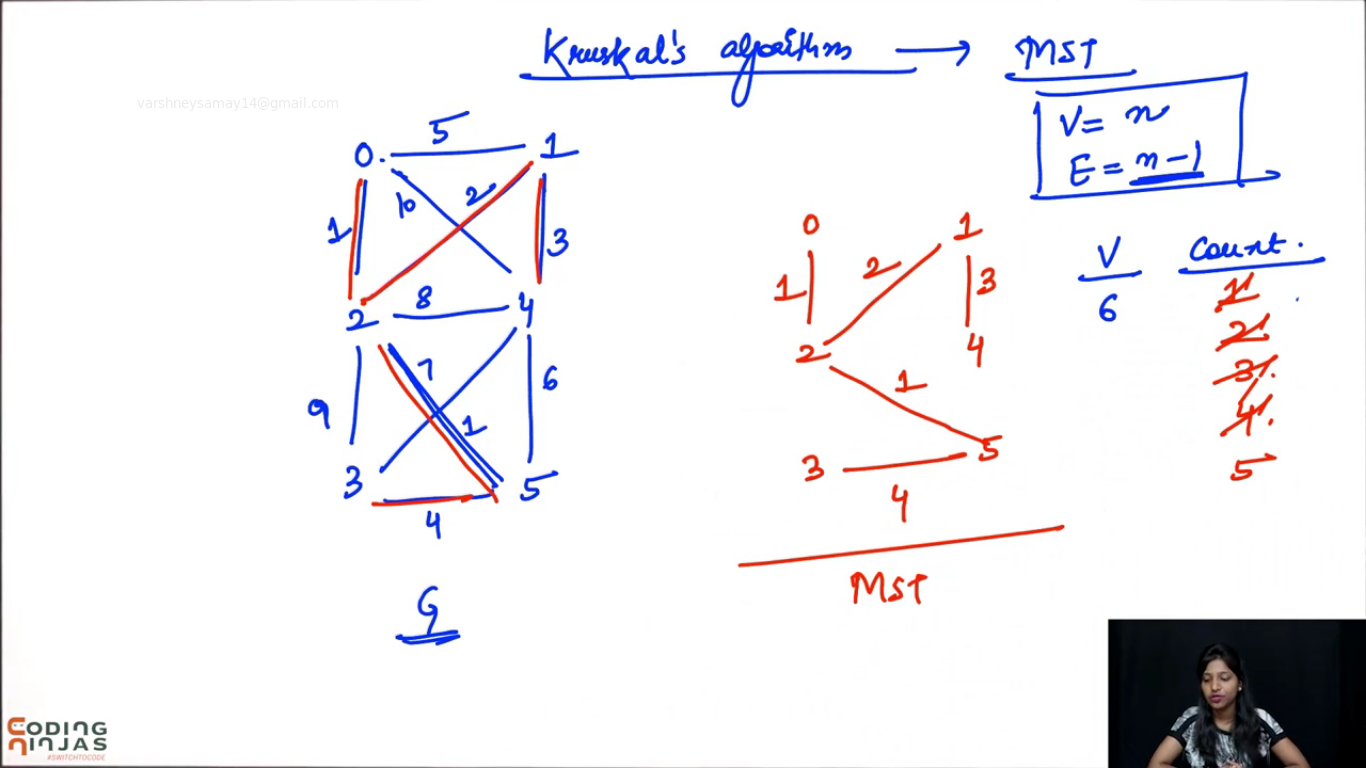 Kruskal's algorithm → MST
varshneysamay14@gmail.com
V = n
E = n-1
5
0. 1
10 2
1 3
2 8 4
7 6
9 1
3 5
4
G
0 1
1 2 3
2 4
1
3 5
4
MST
V Count.
6 1
2
3
4
5
CODING
NINJAS
#SWITCHTOCODE